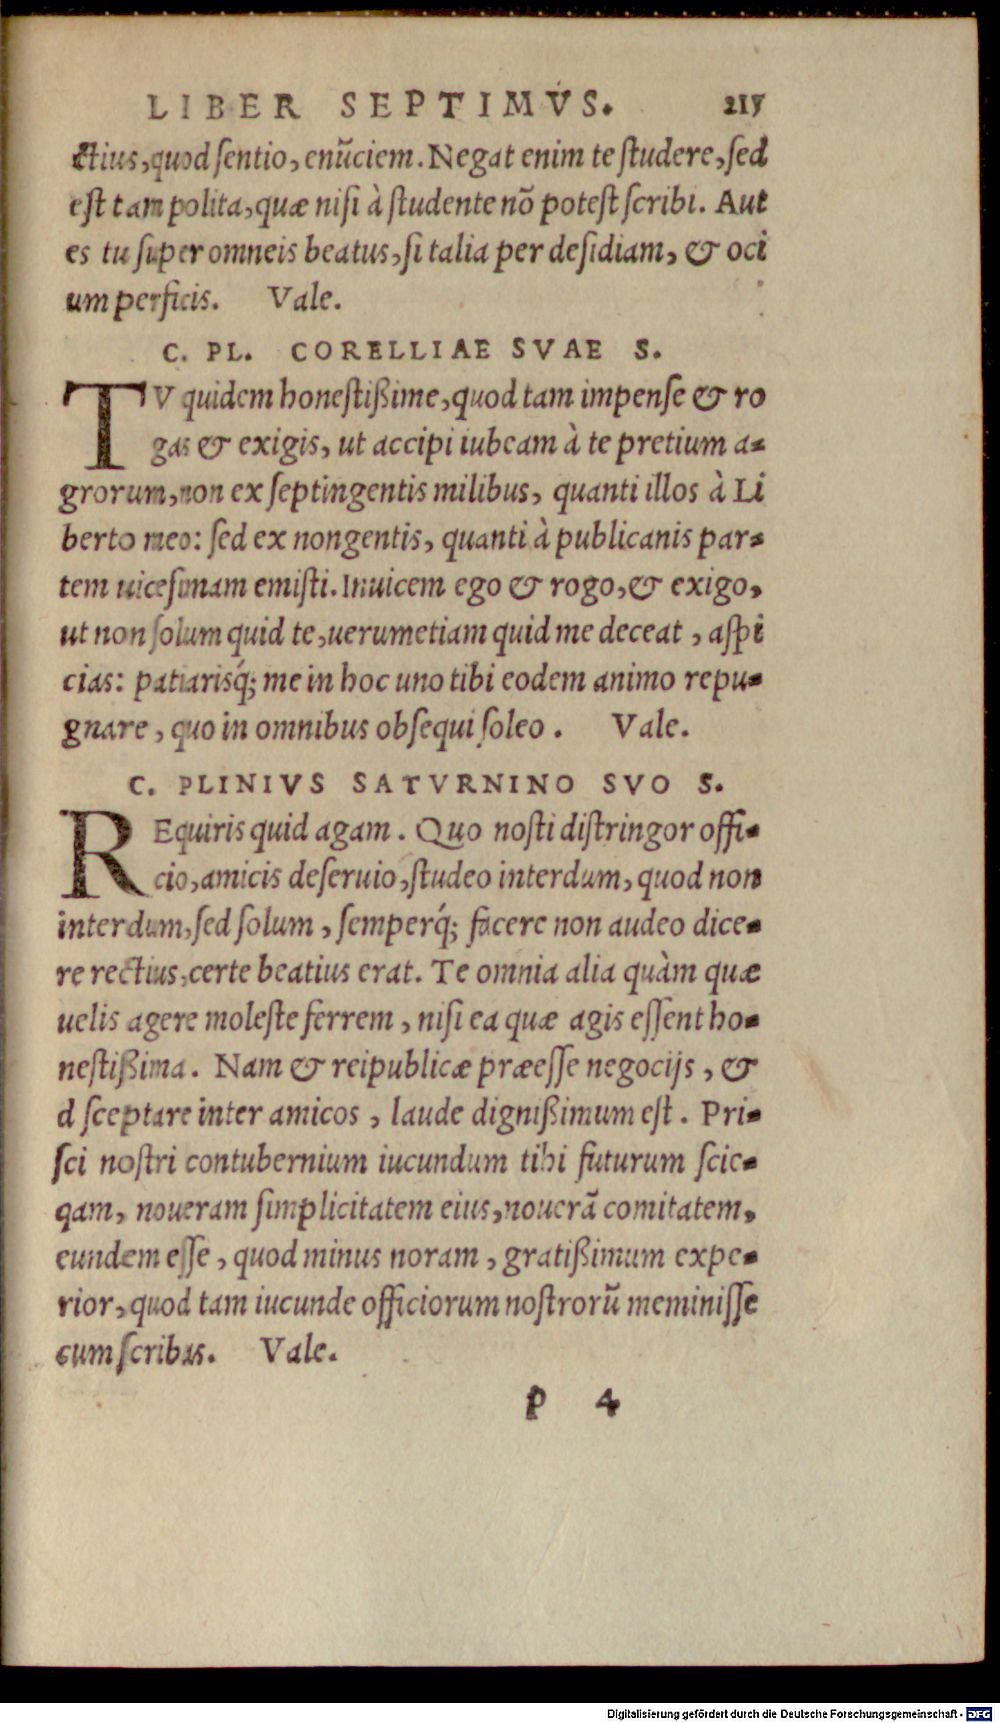 LIBER SEPTIMVS. 215
ctius, quod sentio, enũciem. Negat enim te studere, sed
est tam polita, quæ nisi à studente nõ potest scribi. Aut
es tu super omneis beatus, si talia per desidiam, & oci
um perficis. Vale.
C. PL. CORELLIAE SVAE S.
TV quidem honestißime, quod tam impense & ro
gas & exigis, ut accipi iubeam à te pretium a-
grorum, non ex septingentis milibus, quanti illos à Li
berto meo: sed ex nongentis, quanti à publicanis par-
tem uicesimam emisti. Inuicem ego & rogo, & exigo,
ut non solum quid te, uerumetiam quid me deceat, aspi
cias: patiarisq́; me in hoc uno tibi eodem animo repu-
gnare, quo in omnibus obsequi soleo. Vale.
C. PLINIVS SATVRNINO SVO S.
REquiris quid agam. Quo nosti distringor offi-
cio, amicis deseruio, studeo interdum, quod non
interdum, sed solum, semperq́; facere non audeo dice-
re rectius, certe beatius erat. Te omnia alia quàm quæ
uelis agere moleste ferrem, nisi ea quæ agis essent ho-
nestißima. Nam & reipublicæ præesse negocijs, &
d sceptare inter amicos, laude dignißimum est. Pri-
sci nostri contubernium iucundum tibi futurum scie-
qam, noueram simplicitatem eius, nouerã comitatem,
eundem esse, quod minus noram, gratißimum expe-
rior, quod tam iucunde officiorum nostrorũ meminisse
cum scribas. Vale.
p 4
Digitalisierung gefördert durch die Deutsche Forschungsgemeinschaft - DFG